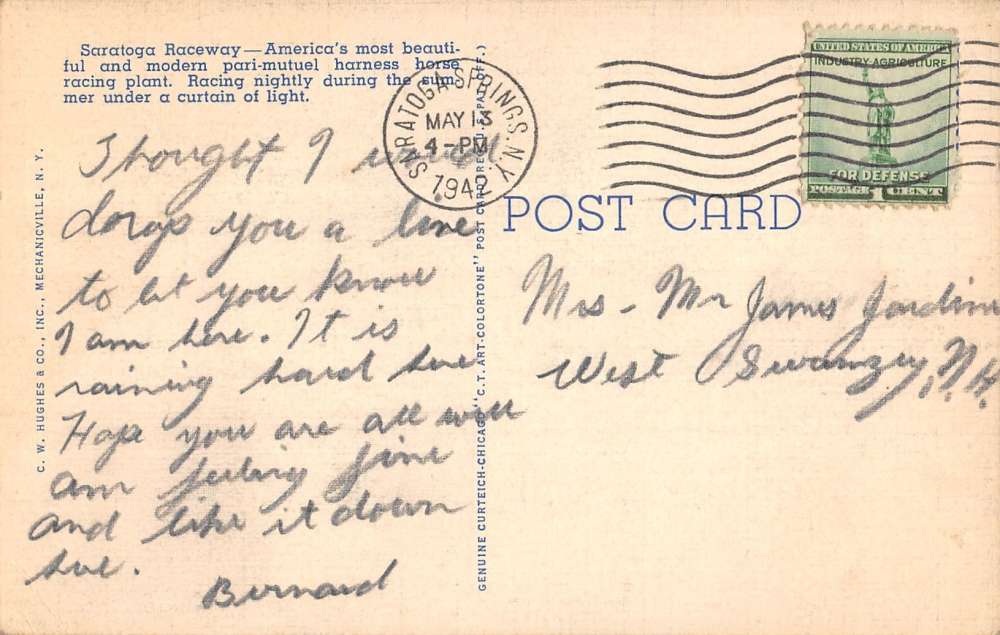 Saratoga Raceway—America's most beauti-
ful and modern pari-mutuel harness horse
racing plant. Racing nightly during the sum-
mer under a curtain of light.
Thought I would
dorop you a line
to let you know
I am here. It is
raining hard here
Hope you are all well
am feeling fine
and like it down
here.
Bernard
C. W. HUGHES & CO., INC., MECHANICVILLE, N. Y.
GENUINE CURTEICH-CHICAGO "C. T. ART-COLORTONE" POST CARD (REG. U. S. PAT. OFF.)
SARATOGA SPRINGS. N.Y.
MAY 13
4-PM
1942
UNITED STATES OF AMERICA
INDUSTRY AGRICULTURE
FOR DEFENSE
POSTAGE 1 CENT
POST CARD
Mrs - Mr James Jardine
West Swanzey, N.H.